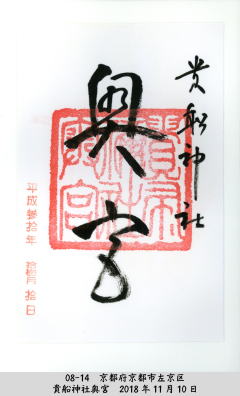 貴船神社
奥宮
平成参拾年 拾壱月 拾日
08-14 京都府京都市左京区
貴船神社奥宮 2018年11月10日